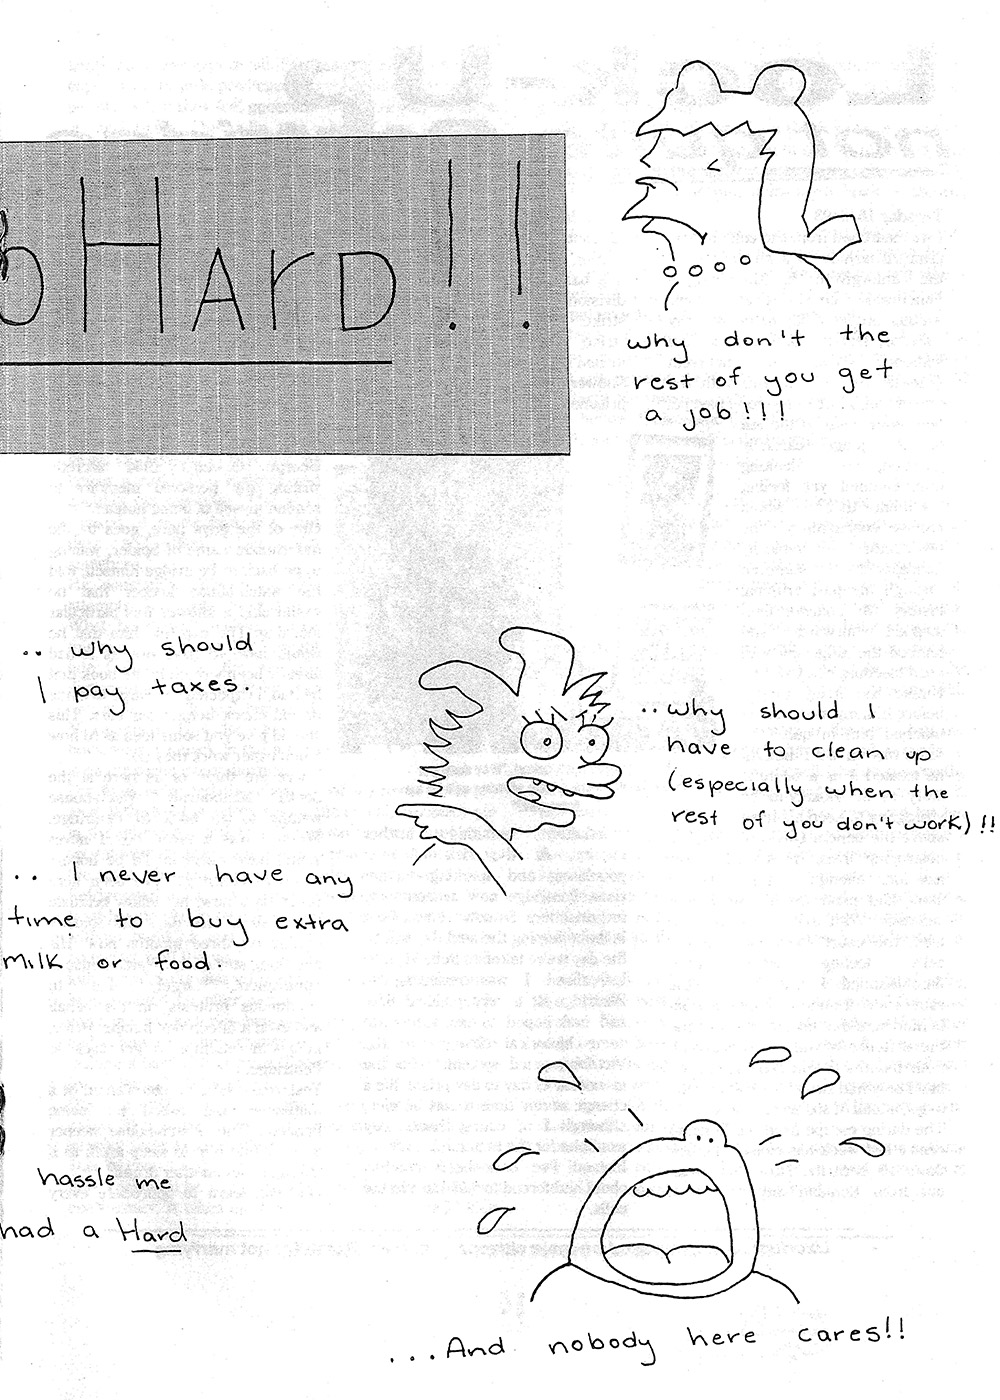 o Hard!!
why don't the
rest of you get
a job!!!
.. why should
I pay taxes.
.. why should I
have to clean up
(especially when the
rest of you don't work) !!
.. I never have any
time to buy extra
milk or food.
hassle me
had a Hard
...And nobody here cares!!